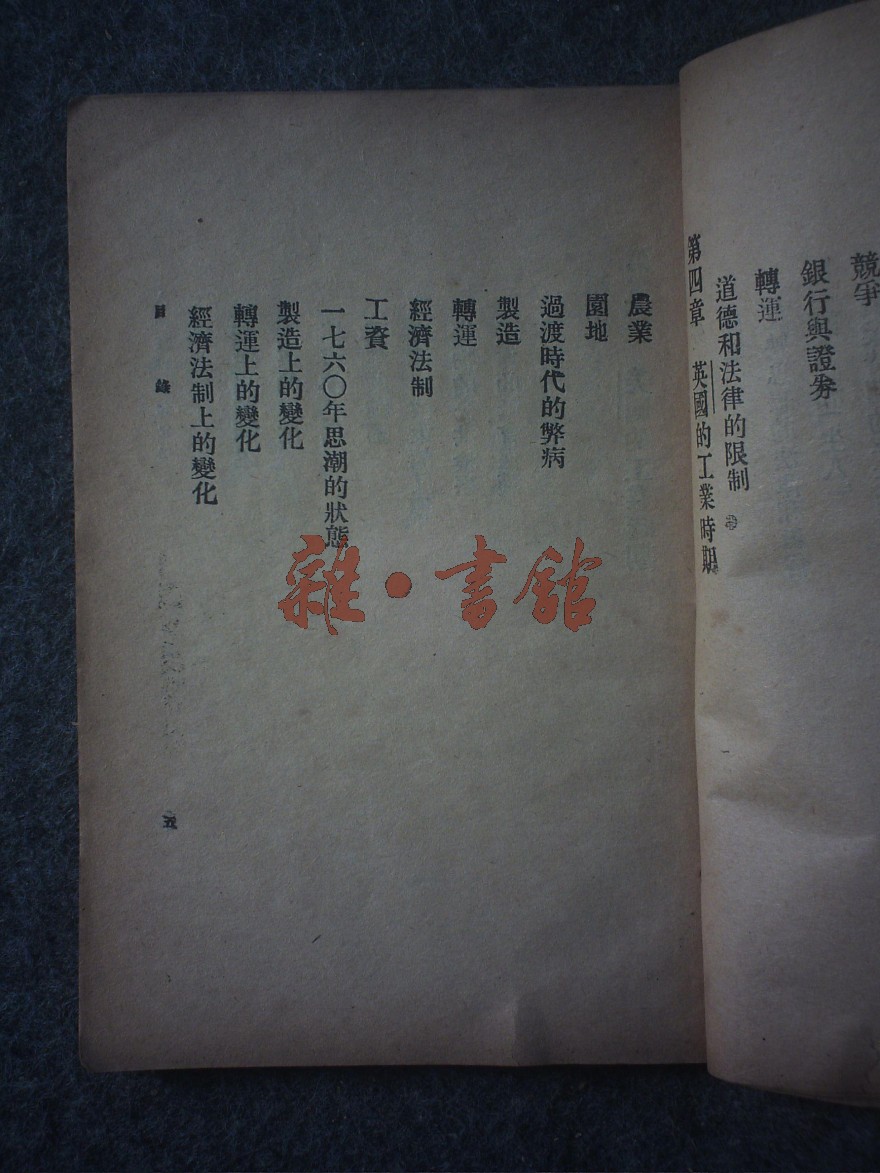 競爭
銀行與證券
轉運
道德和法律的限制
第四章 英國的工業時期
農業
園地
過渡時代的弊病
製造
轉運
經濟法制
工資
一七六〇年思潮的狀態
製造上的變化
轉運上的變化
經濟法制上的變化
目錄
五
雜·書館